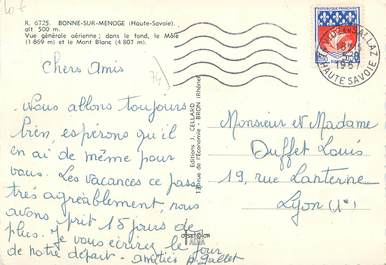 R. 6725. BONNE-SUR-MENOGE (Haute-Savoie).
alt 500 m.
Vue générale aérienne ; dans le fond, le Môle
(1 869 m) et le Mont Blanc (4 807 m).
74
Chers Amis
Nous allons toujours
bien esperons qu'il
en ai de même pour
vous. Les vacances ce passe
très agréablement, nous
avons prit 15 jours de
plus. Je vous écrirez le jour
de notre départ - amitiés
Gallet
Editions J. CELLARD
BRON (Rhône)
HAUTE SAVOIE
1967
Monsieur et Madame
Duffet Louis
19, rue Lanterne
Lyon (1e)